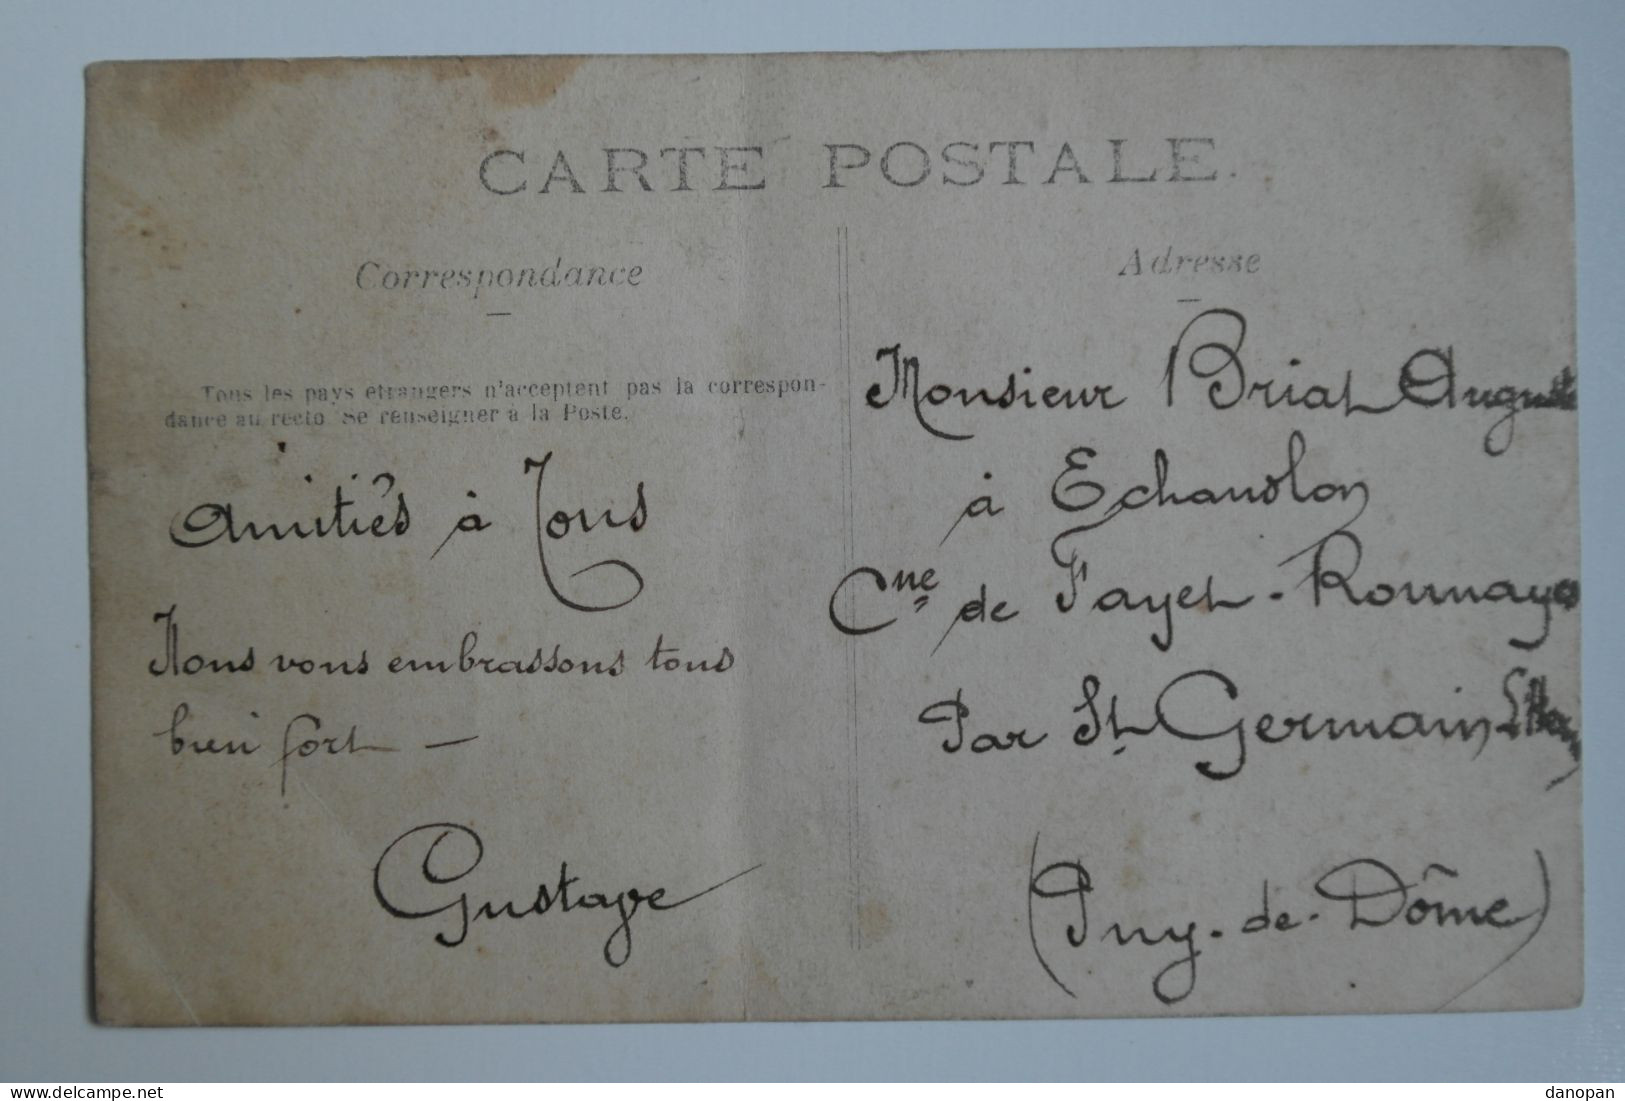 CARTE POSTALE.
Correspondance
Tous les pays étrangers n'acceptent pas la correspon-
dance au recto Se renseigner à la Poste.
Amitiés à Tous
Nous vous embrassons tous
bien fort —
Gustave
Adresse
Monsieur Briat Auguste
à Echandolon
Cne de Fayet-Ronnaye
Par St Germain L'Herm
(Puy-de-Dôme)
delcampe.net
danopan